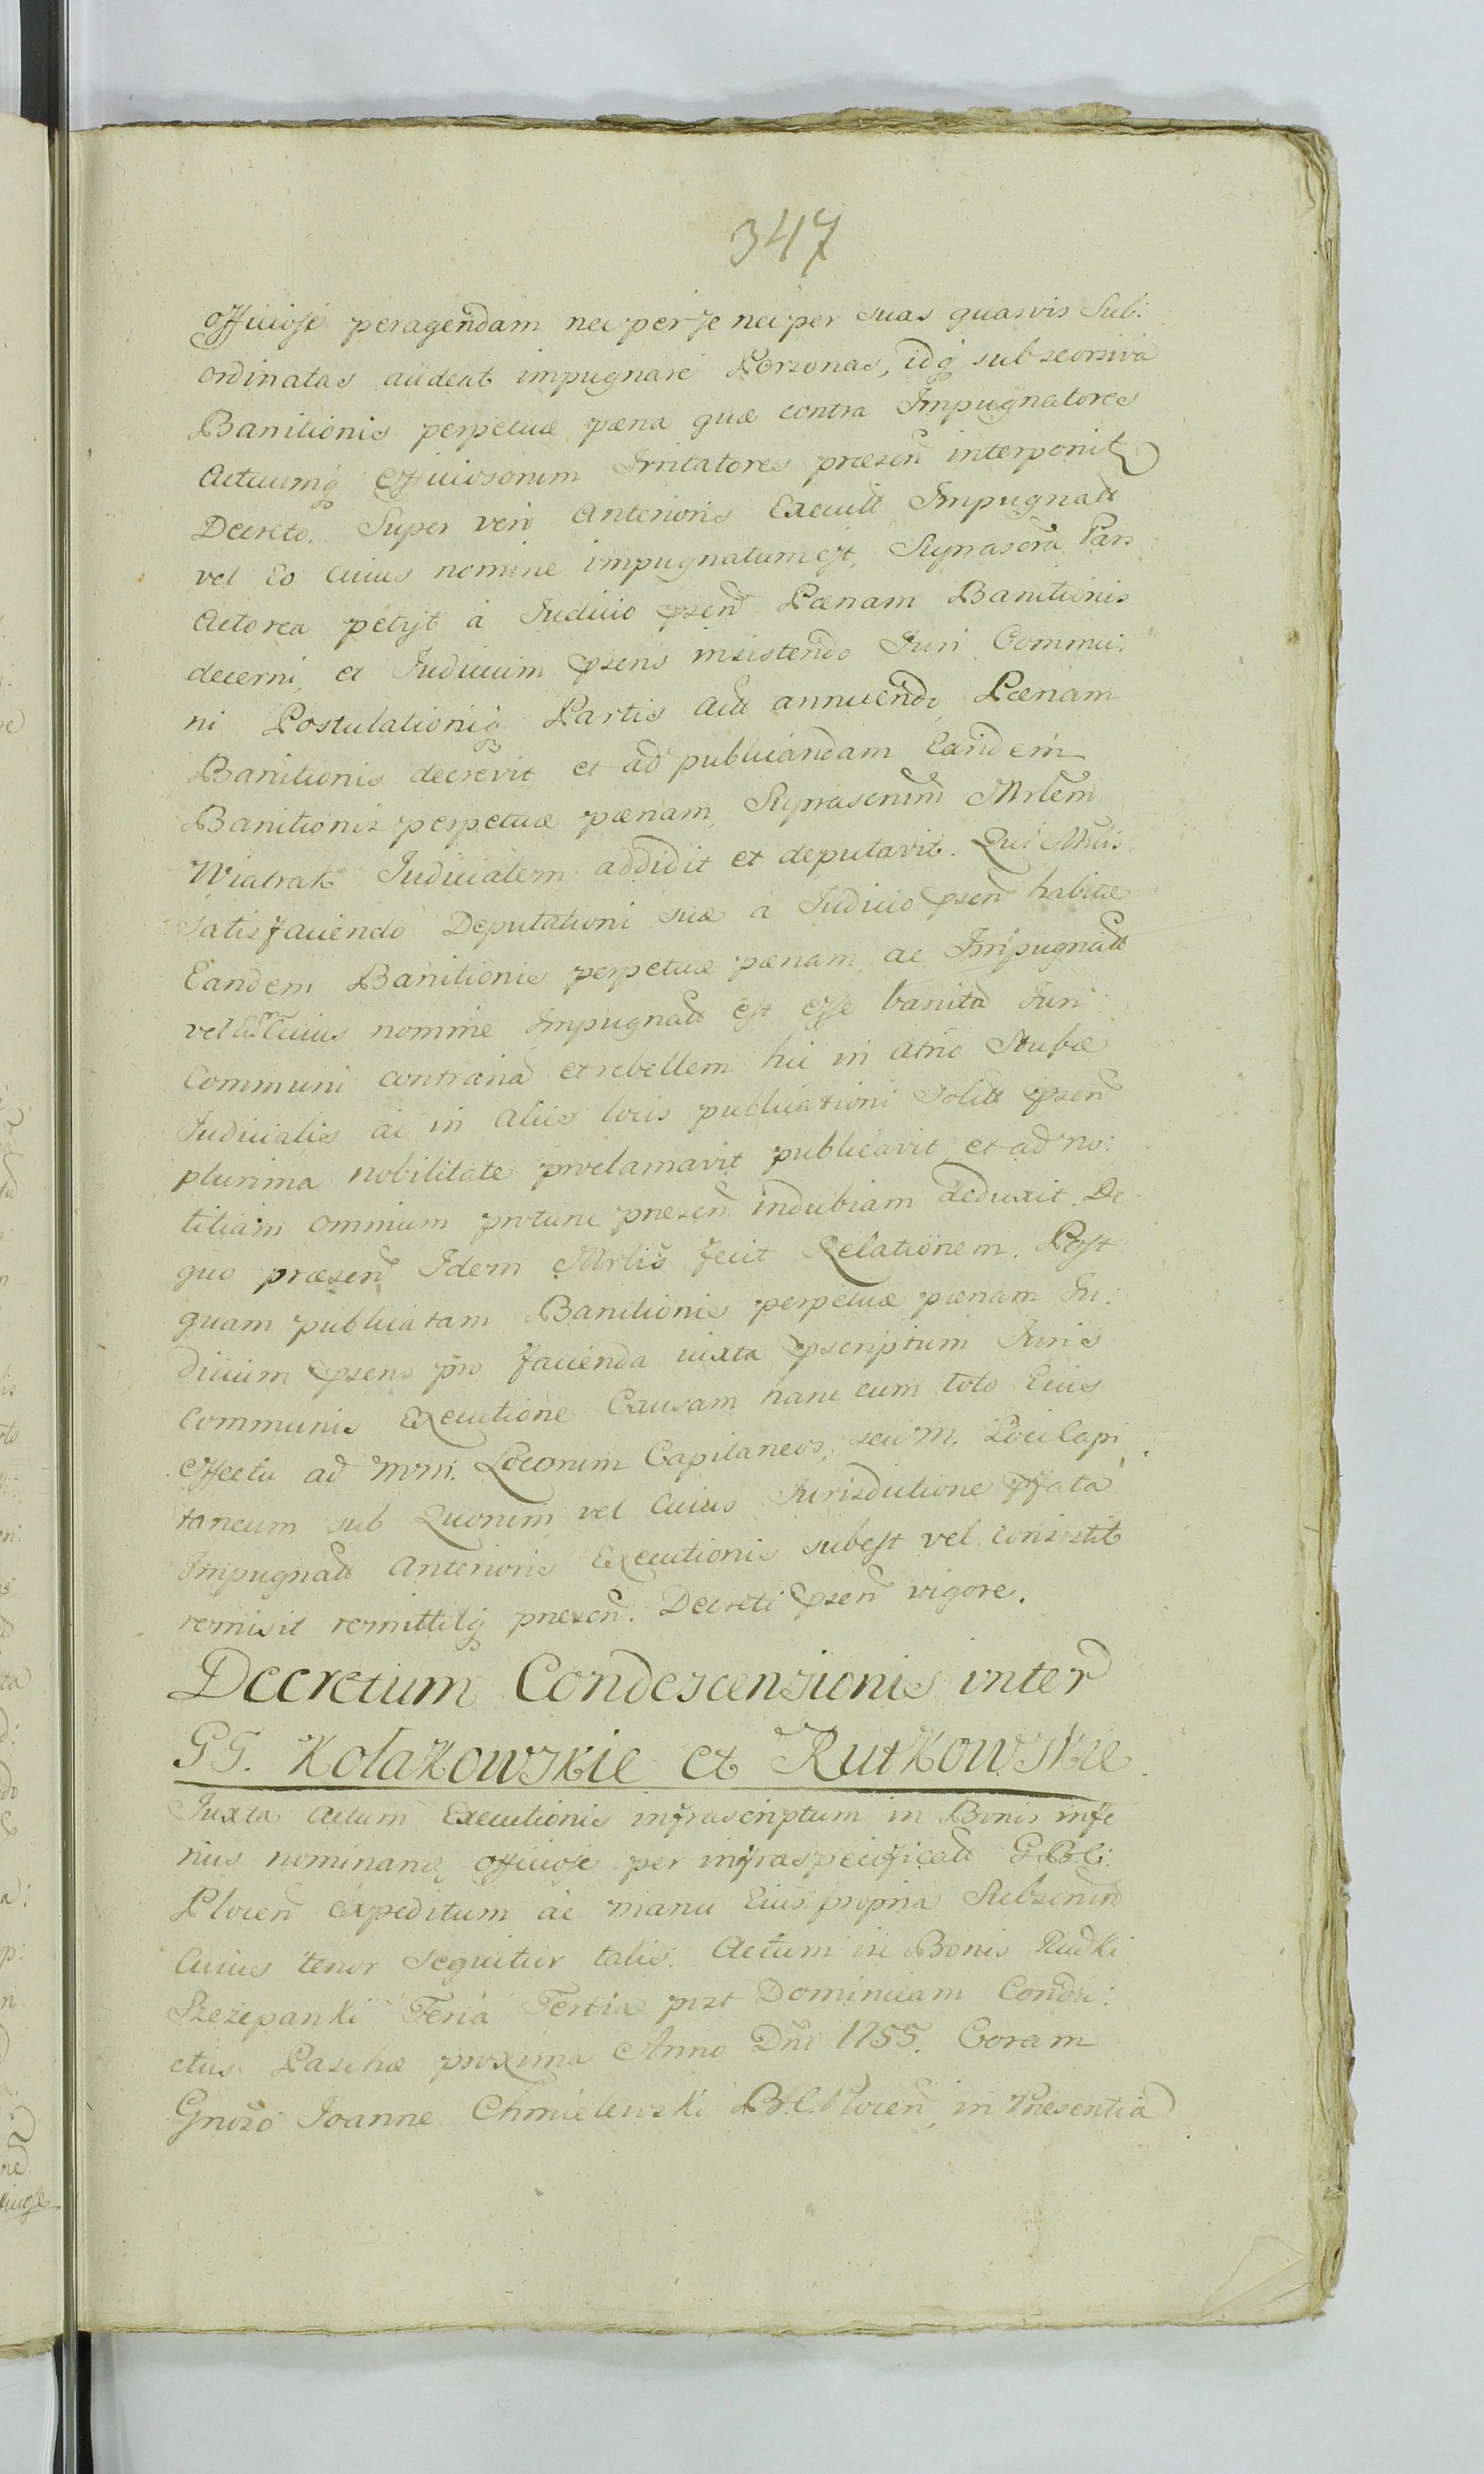 347
officiose peragendam nec per se nec per suas quasvis Sub:
ordinatas audeat impugnare Personas, idq sub seorsiva
Banitionis perpetuæ pæna quæ contra Impugnatores
Actuumq Officiosorum Irritatores præsen interponit
Decreto. Super vero Anterioris Executt Impugnatt
vel Eo cuius nomine impugnatum est, Suprascra Pars
Actorea petijt à Iudicio psen Pænam Banitionis
decerni, et Iudicium psens insistendo Iuri Commu:
ni Postulationiq Partis Actt annuendo, Pænam
Banitionis decrevit, et ad publicandam Eandem
Banitionis perpetuæ pænam, Suprascrum Mrlem
Wiatrak Iudicialem addidit et deputavit. Qui Mrlis
satisfaciendo Deputationi suæ a Iudicio psen habitæ
Eandem Banitionis perpetuæ pænam, ac Impugnatt
vel Eum Cuius nomine Impugnatt est esse banita Iuri
Communi contraria et rebellem hic in atrio Stubæ
Iudicialis ac in aliis locis publicationi solitt psen
plurima nobilitate proclamavit publicavit et ad no:
titiam omnium protunc præsen indubiam deduxit. De
quo præsen Idem Mrlis fecit Relationem. Post
quam publicatam Banitionis perpetuæ pænam Iu:
dicium psens pro facienda iuxta pscriptum Iuris
Communis Executione Causam hanc cum toto Eius
effectu ad Mm. Locorum Capitaneos, seu M. Loci Capi
taneum sub Quorum vel Cuius Iurisdictione pfata
Impugnatt Anterioris Executionis subest vel consistit
remisit remittitq præsen. Decreti psen vigore.
Decretum Condescensionis inter
GG. Kołakowskie et Rutkowskie.
Iuxta Actum Executionis infrascriptum in Bonis infe
rius nominanq officiose per infraspecificatt G. B. C:
Plocen expeditum ac manu Eius propria Subscrum
Cuius tenor sequitur talis. Actum in Bonis Rudki
Szczepanki Feria Tertia post Dominicam Condu:
ctus Paschæ proxima Anno Dni 1755. Coram
Gnoso Ioanne Chmielewski B. C. Plocen, in Præsentia